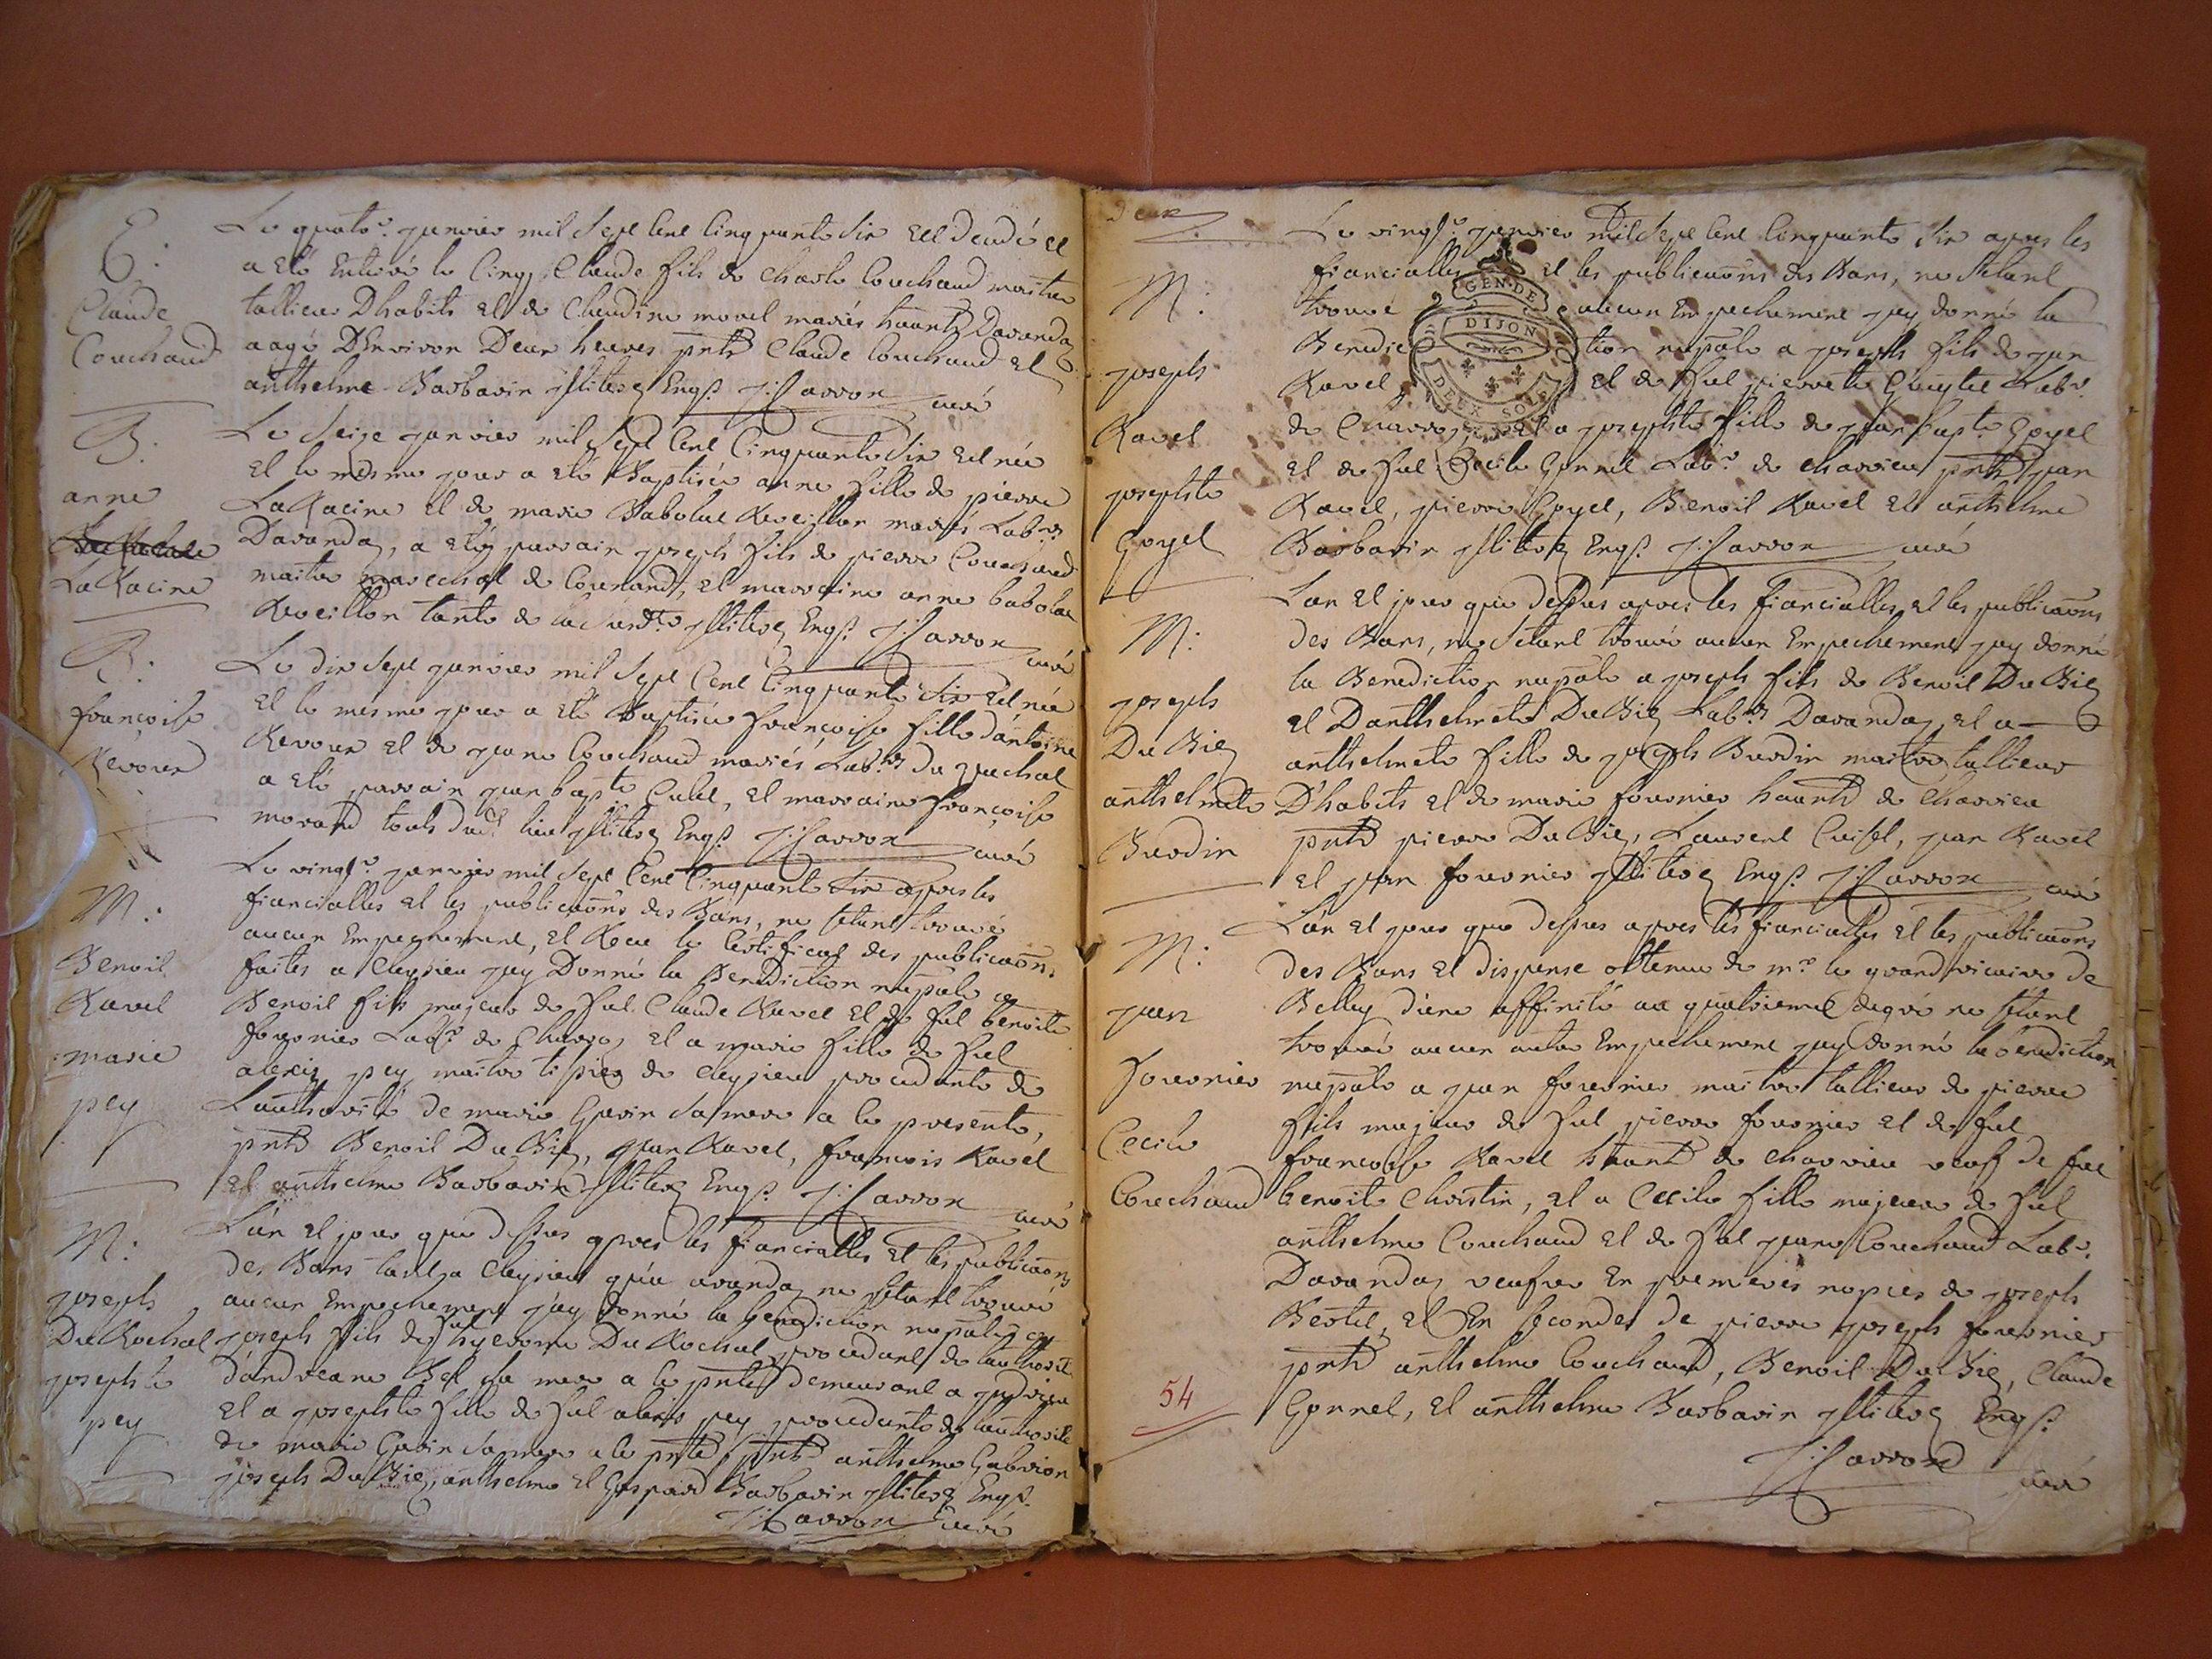 E:
Claude
Couchaud
Le quatre janvier mil sept cent cinquante six est decedé et
a eté enterré le cinq Claude fils de charle Couchaud maitre
tallieur Dhabits et de Claudine morel mariés Davanda
aagé DEnviron Deux heures pnts Claude Couchaud et
anthelme Barbarin jlliterez Enqs. J: Carron curé
B.
anne
La Racine
Le seize janvier mil sept cent cinquante six est née
et le mesme jour a eté Baptisée anne fille de pierre
La Racine et de marie Babolat Reveillon mariés Labrs
Davanda, a eté parrain joseph fils de pierre Couchaud
maitre marechal de Courand, et marraine anne babolat
Reveillon tante de la jlliterez Enqs. J: Carron curé
B:
françoise
Revoux
Le dix sept janvier mil sept cent cinquante six est née
et le mesme jour a eté Baptisée françoise fille dantoine
Revoux et de jeane Couchaud mariés Labrs du
a eté parrain jean bapte Culet, et marraine françoise
morand touts dud. lieu jlliterez Enqs. J: Carron curé
M:
Benoit
Ravel
marie
pey
Le vingt janvier mil sept cent cinquante six apres les
fiancialles et les publicaons des Bans, ne setant trouvé
aucun Empechement, et Receu le Certificat des publicaons
faites a Cleysieu jay Donné la Benediction nupale a
Benoit fils majeur de feu Claude Ravel et de fue benoite
fournier Labr. de et a marie fille de feu
alexis pey maitre de Cleysieu procedante de
Lauthorité de marie Gavin sa mere a ce presente,
pnts Benoit Du Biez, jean Ravel, francois Ravel
et anthelme Barbarin jlliterez Enqs. J: Carron curé
M:
joseph
Du Rochat
josephte
pey
Lan et jour que dessus apres les fiancialles et les publicaons
des Bans tant a Cleysieu qua avanda ne setant trouvé
aucun Empechement jay donné la benediction nupale a
joseph fils de feu hyerome Du Rochat procedant de lauthorité
dandreane Bel sa mere a ce pnte demeurant a
et a josephte fille de feu alexis pey procedante de lauthorité
de marie Gavin sa mere a ce pnte, pnts anthelme
joseph Du Biez, anthelme et Gaspard Barbarin jlliterez Enqs.
J: Carron curé
deux
M:
joseph
Ravel
josephte
Goyet
Le vingt janvier mil sept cent cinquante six apres les
fiancialles et les publicaons des Bans, ne setant
trouvé aucun Empechement jay donné la
Benediction nupale a joseph fils de jean
Ravel et de fue pierrette Labr.
de et a josephte fille de jean bapte Goyet
et de fue Cecile Gonnel Labr. de charvieu pnts jean
Ravel, pierre Goyet, Benoit Ravel et anthelme
Barbarin jlliterez Enqs. J: Carron curé
GEN.DE
DIJON
DEUX SOLS
M:
joseph
Du Biez
anthelmete
Burdin
Lan et jour que dessus apres les fiancialles et les publicaons
des Bans, ne setant trouvé aucun Empechement jay donné
la Benediction nupale a joseph fils de Benoit Du Biez
et Danthelmete Du Biez Labrs Davanda, et a
anthelmete fille de joseph Burdin maitre tallieur
D'habits et de marie fournier de charvieu
pnts pierre Du Biez, Laurent Cuisel, jean Ravel
et jean fournier jlliterez Enqs. J: Carron curé
M:
jean
fournier
Cecile
Couchaud
Lan et jour que dessus apres les fiancialles et les publicaons
des Bans et dispense obtenue de mr. le grand vicaire de
Belley d'une affinité au quatrieme degré ne setant
trouvé aucun autre Empechement jay donné la benediction
nupale a jean fournier maitre tallieur de pierre
fils majeur de feu pierre fournier et de fue
francoise Ravel de charvieu veuf de fue
benoite Christin, et a Cecile fille majeure de feu
anthelme Couchaud et de fue jeane Couchaud Labr.
Davanda, veufve En premieres nopces de joseph
Bertet, et En secondes de pierre joseph fournier
pnts anthelme Couchaud, Benoit Du Biez, Claude
Gonnel, et anthelme Barbarin jlliterez Enqs.
J: Carron curé
54